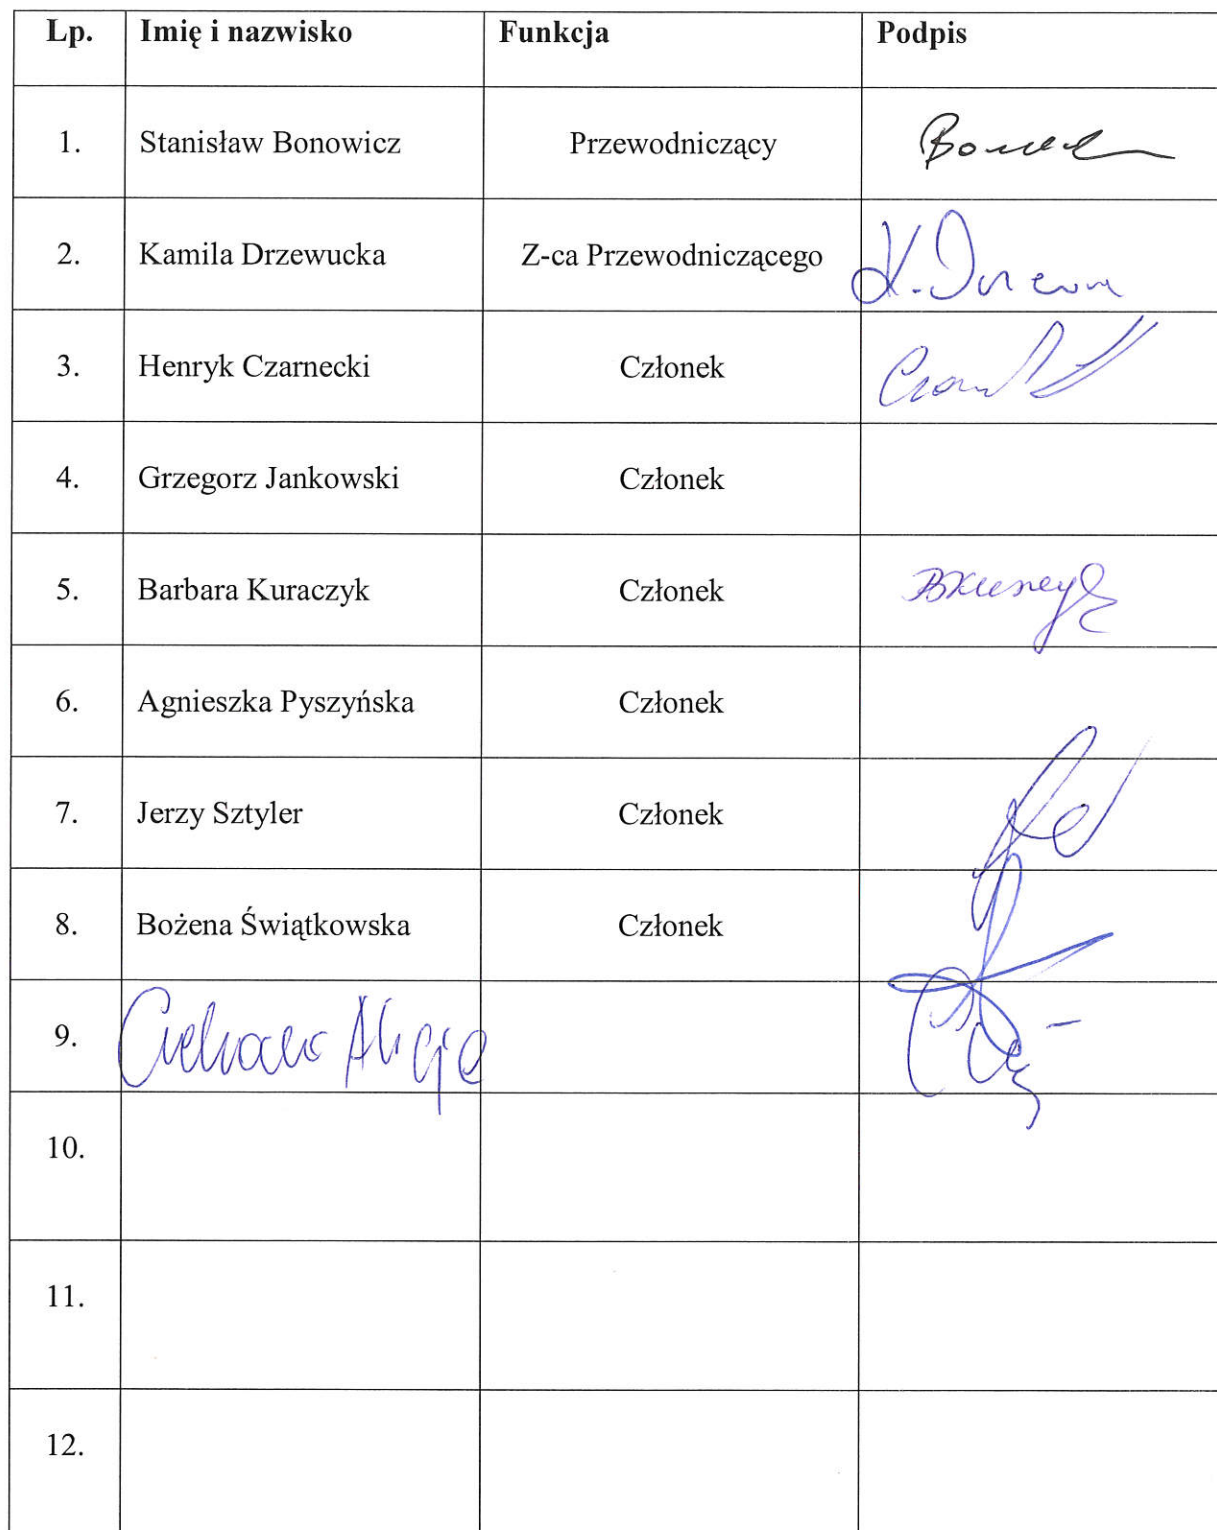 Lp. Imię i nazwisko Funkcja Podpis
1. Stanisław Bonowicz Przewodniczący
2. Kamila Drzewucka Z-ca Przewodniczącego K.
3. Henryk Czarnecki Członek
4. Grzegorz Jankowski Członek
5. Barbara Kuraczyk Członek
6. Agnieszka Pyszyńska Członek
7. Jerzy Sztyler Członek
8. Bożena Świątkowska Członek
9. Alicja
10.
11.
12.